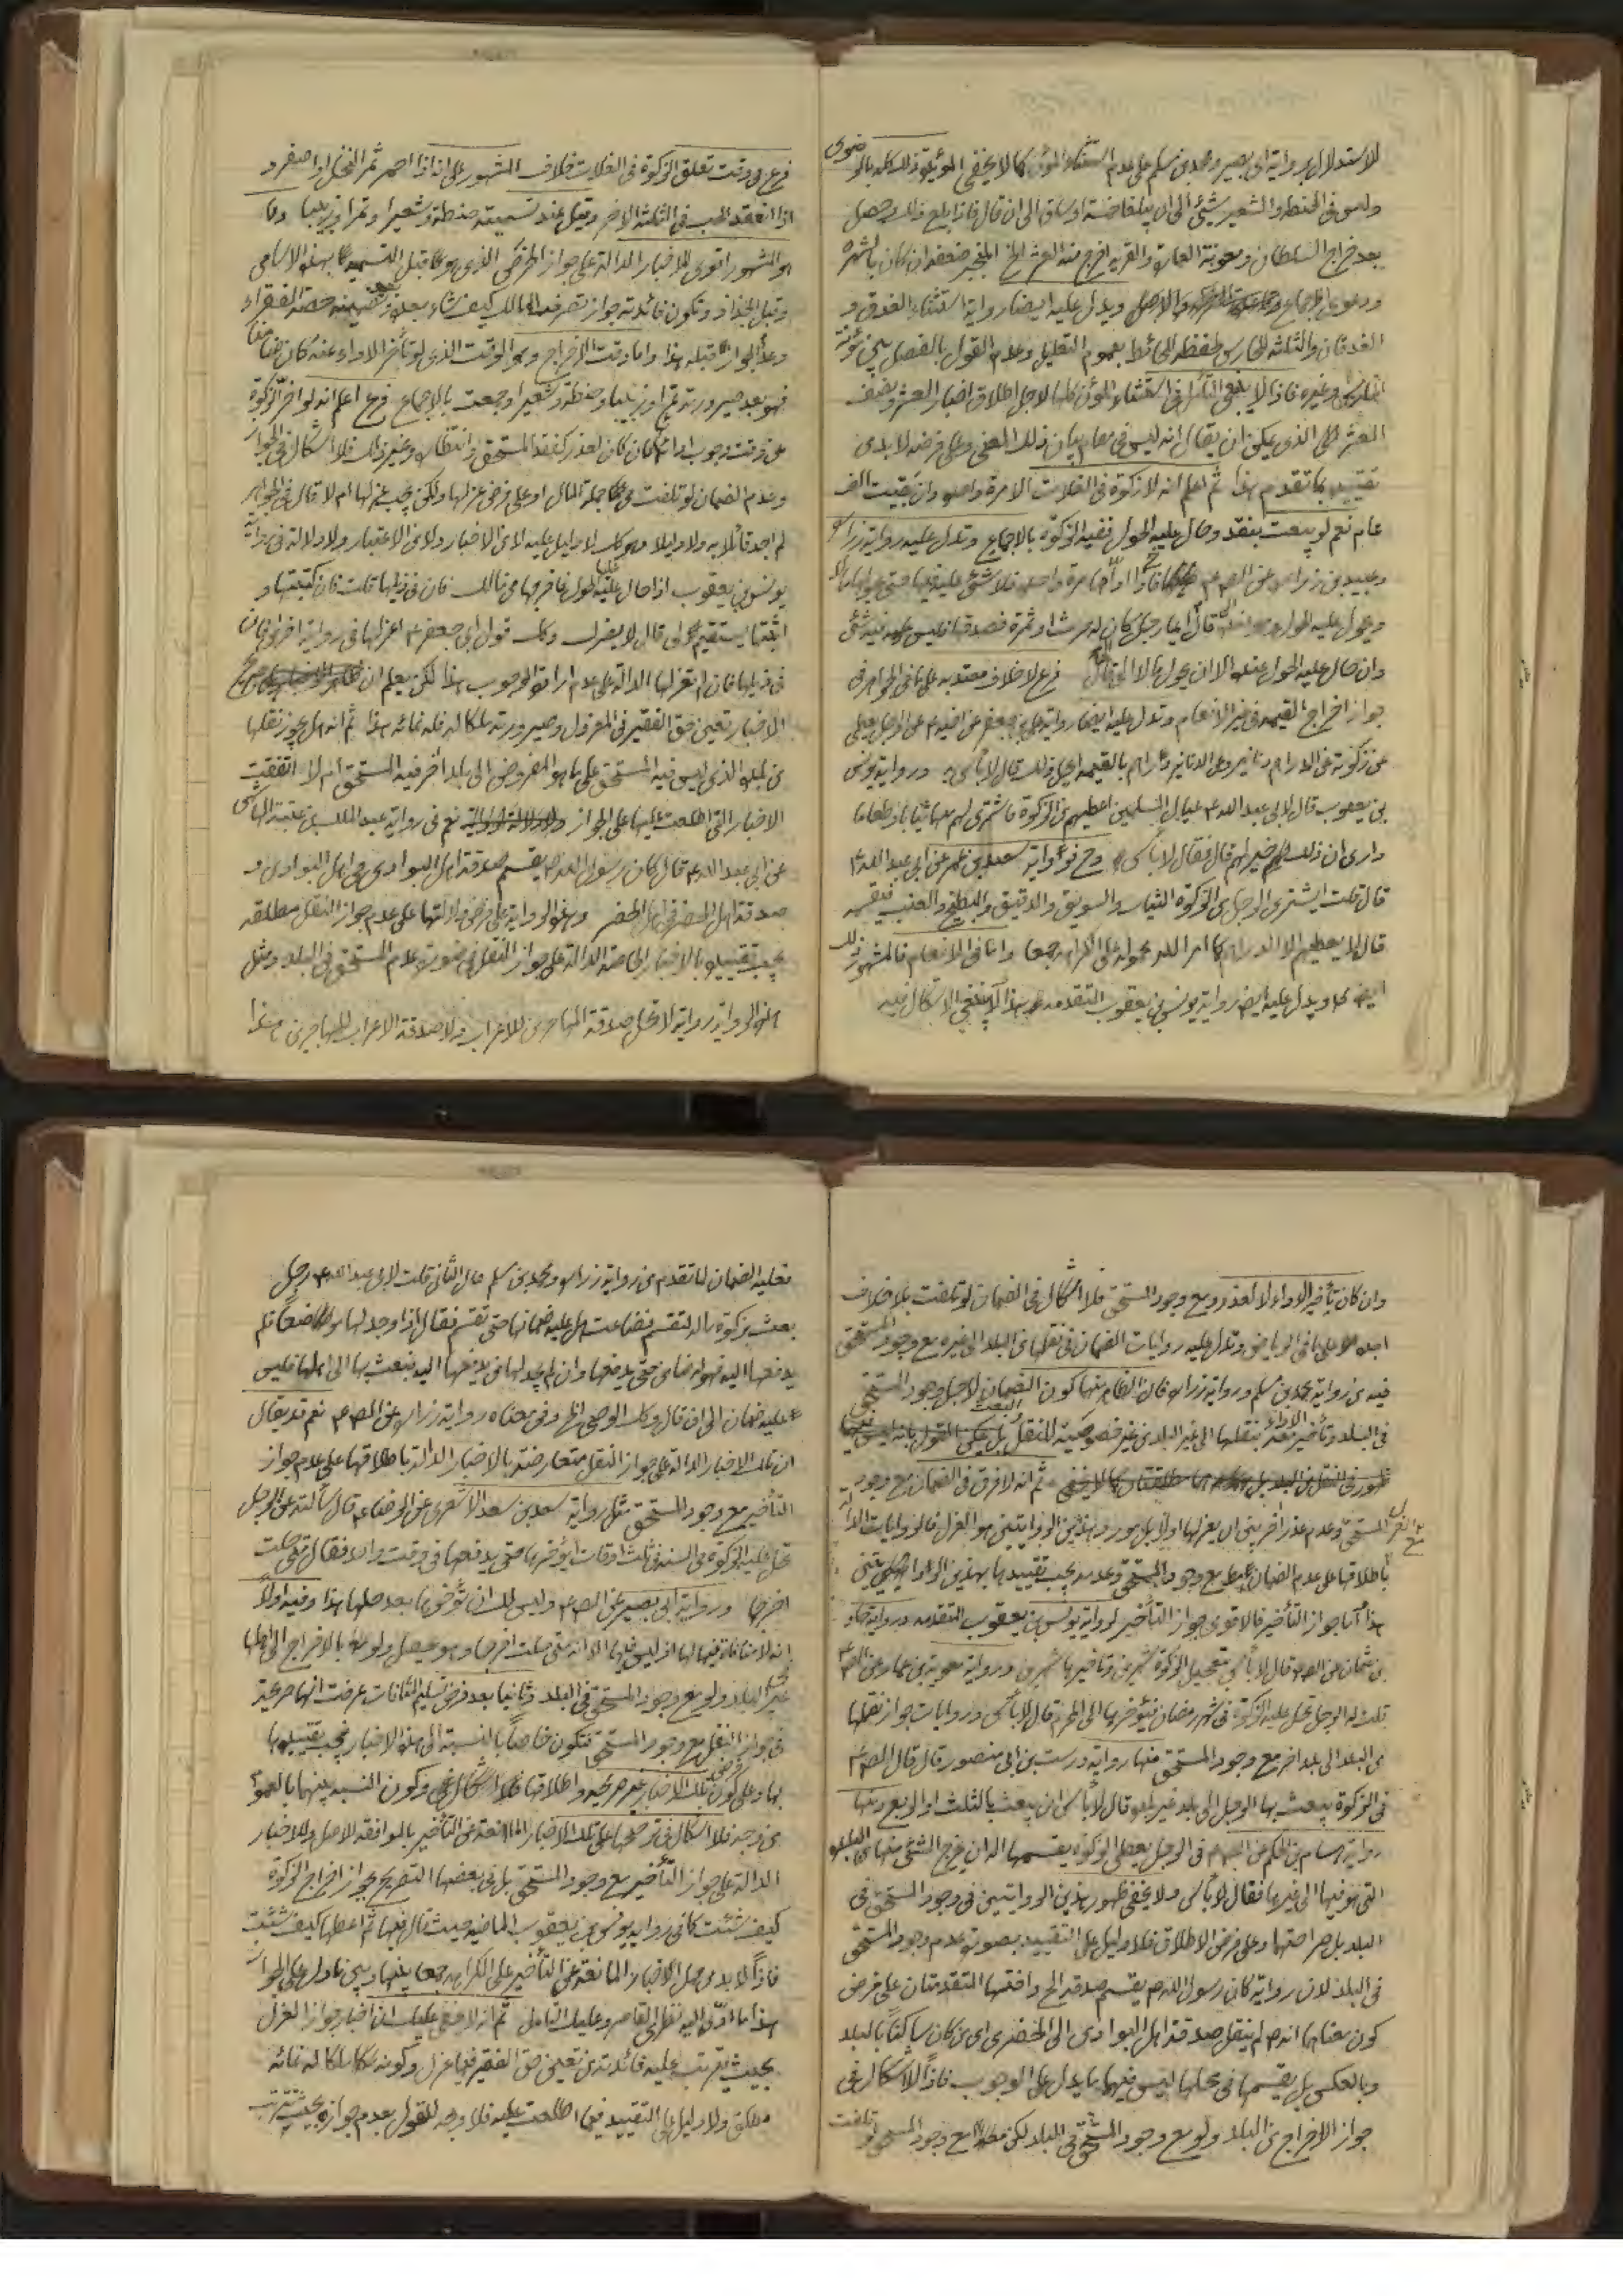 الاستدلال برواية ابى بصير ومحمد بن مسلم على عدم استثناء المؤن كما لا يخفى المؤيد ذلك كله بالرضوى
وليس فى الحنطة والشعير شئ الى ان يبلغا خمسة اوساق الى ان قال فاذا بلغ ذلك وحصل
بعد خراج السلطان ومعونة العمارة والقرية اخرج منه العشر الخ المنجبر ضعفه ان كان بالشهرة
ودعوى الاجماع والاصل ويدل عليه ايضا رواية استثناء العذق و
العذقان والثلثة للحارس لحفظه الحائط بعموم التعليل وعدم القول بالفصل بين مؤنة
الحارس وغيره فاذا لا ينبغى التأمل فى استثناء المؤن كلها لاجل اطلاق اخبار العشر ونصف
العشر الذى يمكن ان يقال انه ليس فى مقام بيان ذلك المعنى وعلى فرضه لا بد من
تقييده بما تقدم هذا ثم اعلم انه لا زكوة فى الغلات الا مرة واحدة وان بقيت الف
عام نعم لو بيعت بنقد وحال عليه الحول ففيه الزكوة بالاجماع وتدل عليه رواية زرارة
وعبيد بن زرارة عن الصم مرة واحدة فلا شئ عليه فيها حتى
ويحول عليه الحول قال ايما رجل كان له حرث او ثمرة فصدقها فليس عليه فيه شئ
وان حال عليه الحول عنده الا ان يحول مالا الخ فرع لا خلاف معتد به على ما فى الجواهر فى
جواز اخراج القيمة فى غير الانعام وتدل عليه ايضا رواية على بن جعفر عن اخيه م عن الرجل يعطى
عن زكوته عن الدراهم دنانير وعن الدنانير دراهم بالقيمة ايحل ذلك قال لا بأس به ورواية يونس
بن يعقوب قال لابى عبد الله ع عيال المسلمين اعطيهم من الزكوة فاشترى لهم منها ثيابا وطعاما
وارى ان ذلك خير لهم قال فقال لا بأس رواية سعيد بن عمر عن ابى عبد الله ع
قال قلت ايشترى الرجل من الزكوة الثياب والسويق والدقيق والبطيخ والعنب فيقسمه
قال لا يعطيهم الا الدراهم كما امر الله محمولة على الكراهة جمعا واما فى الانعام فالمشهور ذلك
ايضا ويدل عليه ايضا رواية يونس بن يعقوب المتقدمة هذا لا ينبغى الاشكال فيه
فرع فى وقت تعلق الزكوة فى الغلات خلاف المشهور على انه اذا احمر ثمر النخل او اصفر و
اذا انعقد الحب فى الثلثة الاخر وقيل عند تسميته حنطة وشعيرا وتمرا وزبيبا
والمشهور اقوى للاخبار الدالة على جواز الخرص الذى هو قبل التسمية بهذه الاسامى
وقبل الجذاذ وتكون فائدته جواز تصرف المالك كيف شاء بعد تضمينه حصة الفقراء
وعدم الجواز قبله هذا واما وقت الاخراج وهو الوقت الذى لو تأخر الاداء عنه كان ضامنا
فهو بعد صيرورته تمرا وزبيبا وحنطة وشعيرا وجمعت بالاجماع فرع اعلم انه لو اخر الزكوة
عن وقت وجوب ادائه فان كان لعذر كفقد المستحق وانتظاره وغير ذلك فلا اشكال فى الجواز
وعدم الضمان لو تلفت من جملة المال او على فرض عزلها ولكن يجب عزلها ام لا قال فى الجواهر
لم اجد قائلا به ولا دليلا وكك لا دليل عليه لا من الاخبار ولا من الاعتبار ولا دلالة فى رواية
يونس بن يعقوب اذا حال عليها الحول فاخرجها من مالك فان فى ذيلها قلت فان كتبتها و
اثبتها يستقيم لى قال لا يضرك وكك قول ابى جعفر ع اعزلها فى رواية اخرى فان
فى ذيلها فان لم تعزلها الدالة على عدم ارادة الوجوب هذا لكن يعلم ان
الاخبار تعين حق الفقير فى المعزول وصيرورته ملكا له فله نمائه هذا ثم انه هل يجوز نقلها
من البلد الذى ليس فيه المستحق على ما هو المفروض الى بلد اخر فيه المستحق ام لا اتفقت
الاخبار التى اطلعت عليها على الجواز نعم فى رواية عبد الملك بن عتبة الهاشمى
عن ابى عبد الله ع قال كان رسول الله ص يقسم صدقة اهل البوادى فى اهل البوادى و
صدقة اهل الحضر فى اهل الحضر وهذه الرواية على فرض دلالتها على عدم جواز النقل مطلقة
يجب تقييدها بالاخبار الخاصة الدالة على جواز النقل فى صورة عدم المستحق فى البلد ومثل
هذه الرواية رواية لا تحل صدقة المهاجرين للاعراب ولا صدقة الاعراب للمهاجرين هذا
وان كان تأخير الاداء لا لعذر ومع وجود المستحق فلا اشكال فى الضمان لو تلفت بلا خلاف
اجده على ما فى الرياض وتدل عليه روايات الضمان فى نقلها من البلد الى غيره مع وجود المستحق
فيه من رواية محمد بن مسلم ورواية زرارة فان الظاهر منها كون الضمان لاجل وجود المستحق
فى البلد وتأخير الاداء بنقلها الى غير البلد من غير خصوصية للنقل بل يمكن القول بانه ليس فيها
ظهور فى النقل من البلد بل ثم انه لا فرق فى الضمان مع وجود
المستحق وعدم عذر اخر بين ان يعزلها اولا بل مورد هذين الروايتين هو العزل فالروايات الدالة
باطلاقها على عدم الضمان مع وجود المستحق وعدمه يجب تقييدها بهذين الروايتين
هذا اما جواز التأخير فالاقوى جواز التأخير لرواية يونس بن يعقوب المتقدمة ورواية حماد
بن عثمان عن الصم قال لا بأس بتعجيل الزكوة شهرين وتأخيرها شهرين ورواية معوية بن عمار عن الصم
قلت له الرجل تحل عليه الزكوة فى شهر رمضان فيؤخرها الى المحرم قال لا بأس وروايات جواز نقلها
من البلد الى بلد اخر مع وجود المستحق منها رواية درست بن ابى منصور قال قال الصم
فى الزكوة يبعث بها الرجل الى بلد غير بلده قال لا بأس ان يبعث بالثلث او الربع ومنها
رواية هشام بن الحكم عن الصم فى الرجل يعطى الزكوة يقسمها اله ان يخرج الشئ منها من البلدة
التى هو فيها الى غيرها فقال لا بأس ولا يخفى ظهور هذين الروايتين فى وجود المستحق فى
البلد بل صراحتهما وعلى فرض الاطلاق فلا دليل على التقييد بصورة عدم وجود المستحق
فى البلد لان رواية كان رسول الله ص يقسم صدقة الخ وافقتها المتقدمتان على فرض
كون معناها انه ص لم ينقل صدقة اهل البوادى الى الحضرى اى من كان ساكنا بالبلد
وبالعكس بل يقسمها فى محلها ليس فيهما ما يدل على الوجوب فاذا لا اشكال فى
جواز الاخراج من البلد ولو مع وجود المستحق فى البلد لكن مع وجود المستحق لو تلفت
فعليه الضمان لما تقدم من رواية زرارة ومحمد بن مسلم قال الثانى قلت لابى عبد الله ع رجل
بعث بزكوة ماله لتقسم فضاعت هل عليه ضمانها حتى تقسم فقال اذا وجد لها موضعا فلم
يدفعها اليه فهو له ضامن حتى يدفعها وان لم يجد لها من يدفعها اليه فبعث بها الى اهلها فليس
عليه ضمان الى ان قال وكك الوصى الخ وفى معناه رواية زرارة عن الصم نعم قد يقال
ان تلك الاخبار الدالة على جواز النقل متعارضة بالاخبار الدالة باطلاقها على عدم جواز
التأخير مع وجود المستحق مثل رواية سعد بن سعد الاشعرى عن الرضا ع قال سألته عن الرجل
تحل عليه الزكوة فى السنة فى ثلث اوقات ايؤخرها حتى يدفعها فى وقت واحد فقال متى حلت
اخرجها ورواية ابى بصير عن الصم وليس لك ان تؤخرها بعد حلها هذا وفيه اولا
انه لا منافاة فيهما لها اذ ليس فيها الا انه متى حلت اخرجها وهو يحصل ولو بالاخراج الى اهلها
غير البلد ولو مع وجود المستحق فى البلد وثانيا بعد فرض تسليم المنافات عرفت انها صريحة
فى جواز النقل مع وجود المستحق فتكون خاصا بالنسبة الى هذه الاخبار فيجب تقييدها
بها وعلى فرض كون تلك الاخبار غير صريحة واطلاقها فلا اشكال فى وكون النسبة بينهما بالعموم
من وجه فلا اشكال فى ترجيحها على تلك الاخبار المانعة عن التأخير بالموافقة الاصل وللاخبار
الدالة على جواز التأخير مع وجود المستحق بل فى بعضها التصريح بجواز اخراج الزكوة
كيف شئت كما فى رواية يونس بن يعقوب الماضية حيث قال فيها ثم اعطها كيف شئت
فاذا لا بد من حمل الاخبار المانعة عن التأخير على الكراهة جمعا بينها وبين ما دل على الجواز
هذا ما ادى اليه نظرى القاصر وعليك بالتأمل ثم انه لا يخفى عليك ان اخبار جواز العزل
بحيث يترتب عليه فائدته من تعيين حق الفقير فيما عزل وكونه ملكا له نمائه
مطلق ولا دليل على التقييد فيما اطلعت عليه فلا وجه للقول بعدم جوازه بحيث يترتب